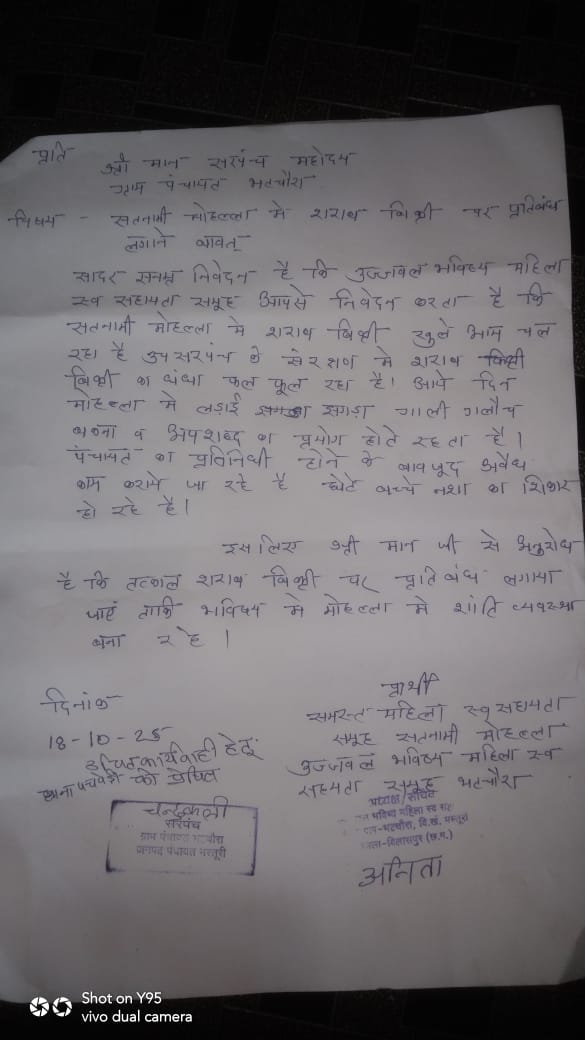 प्रति
श्री मान सरपंच महोदय
ग्राम पंचायत भटचौरा
विषय - सतनामी मोहल्ला मे शराब बिक्री पर प्रतिबंध
लगाने बावत्
सादर सनम्र निवेदन है कि उज्जवल भविष्य महिला
स्व सहायता समूह आपसे निवेदन करता है कि
सतनामी मोहल्ला मे शराब बिक्री खुले आम चल
रहा है उपसरपंच के संरक्षण मे शराब
बिक्री का धंधा फल फूल रहा है। आये दिन
मोहल्ला मे लड़ाई झगड़ा गाली गलौच
बकना व अपशब्द का प्रयोग होते रहता है।
पंचायत का प्रतिनिधी होने के बावजूद अवैध
काम कराये जा रहे है छोटे बच्चे नशा का शिकार
हो रहे है।
इसलिए श्री मान जी से अनुरोध
है कि तत्काल शराब बिक्री पर प्रतिबंध लगाया
जाएं ताकि भविष्य मे मोहल्ला मे शांति व्यवस्था
बना रहे।
दिनांक
18-10-25
उचित कार्यवाही हेतु
थाना पचपेड़ी को प्रेषित
चन्द्रकली
सरपंच
ग्राम पंचायत भटचौरा
जनपद पंचायत मस्तूरी
प्रार्थी
समस्त महिला स्व सहायता
समूह सतनामी मोहल्ला
उज्जवल भविष्य महिला स्व
सहायता समूह भटचौरा
अध्यक्ष/सचिव
भविष्य महिला स्व सहा
ग्राम-भटचौरा, वि.खं. मस्तूरी
जिला-बिलासपुर (छ.ग.)
अनिता
Shot on Y95
vivo dual camera